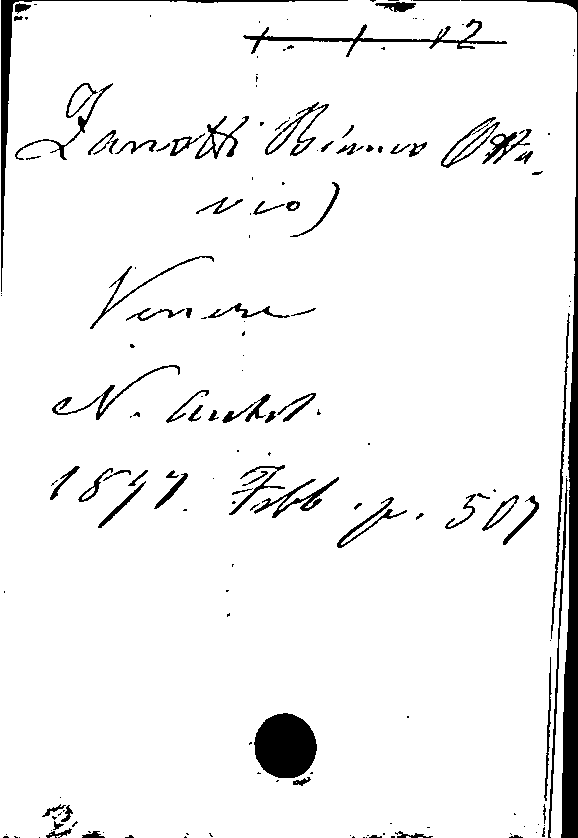 1. 1. 12
Zanotti Bianco Otta-
vio)
Venere
N. Antol.
1897 Febb. p. 507
2